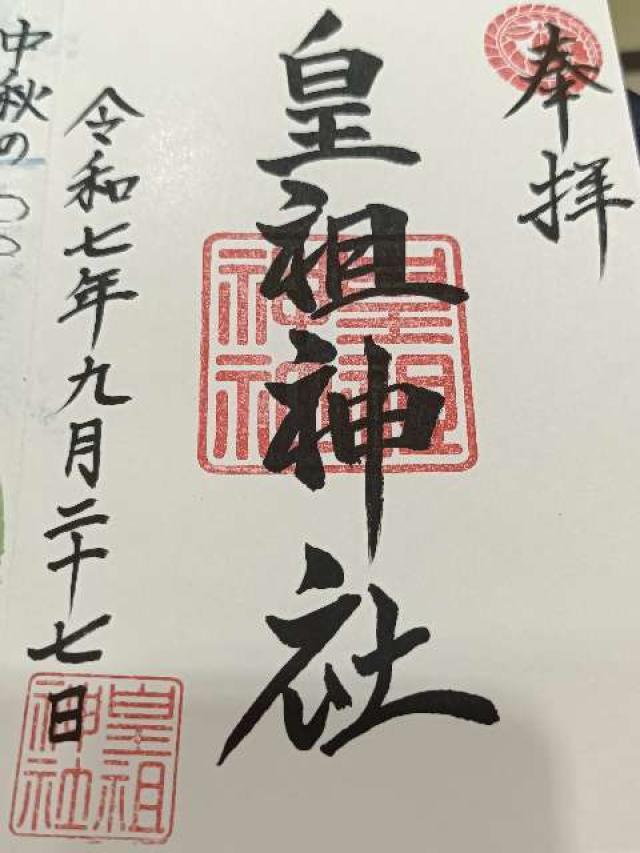 奉拝
皇祖神社
令和七年九月二十七日
中秋の
皇祖
神社
皇祖
神社